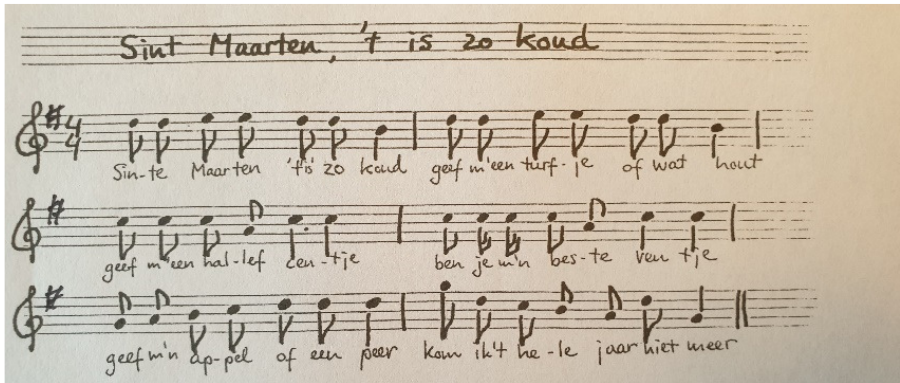 Sint Maarten, 't is zo koud
4/4
Sin-te Maarten 't is zo koud geef m'een turf-je of wat hout
geef m'een hal-lef cen-tje ben je m'n bes-te ven tje
geef m'n ap-pel of een peer kom ik't he-le jaar niet meer